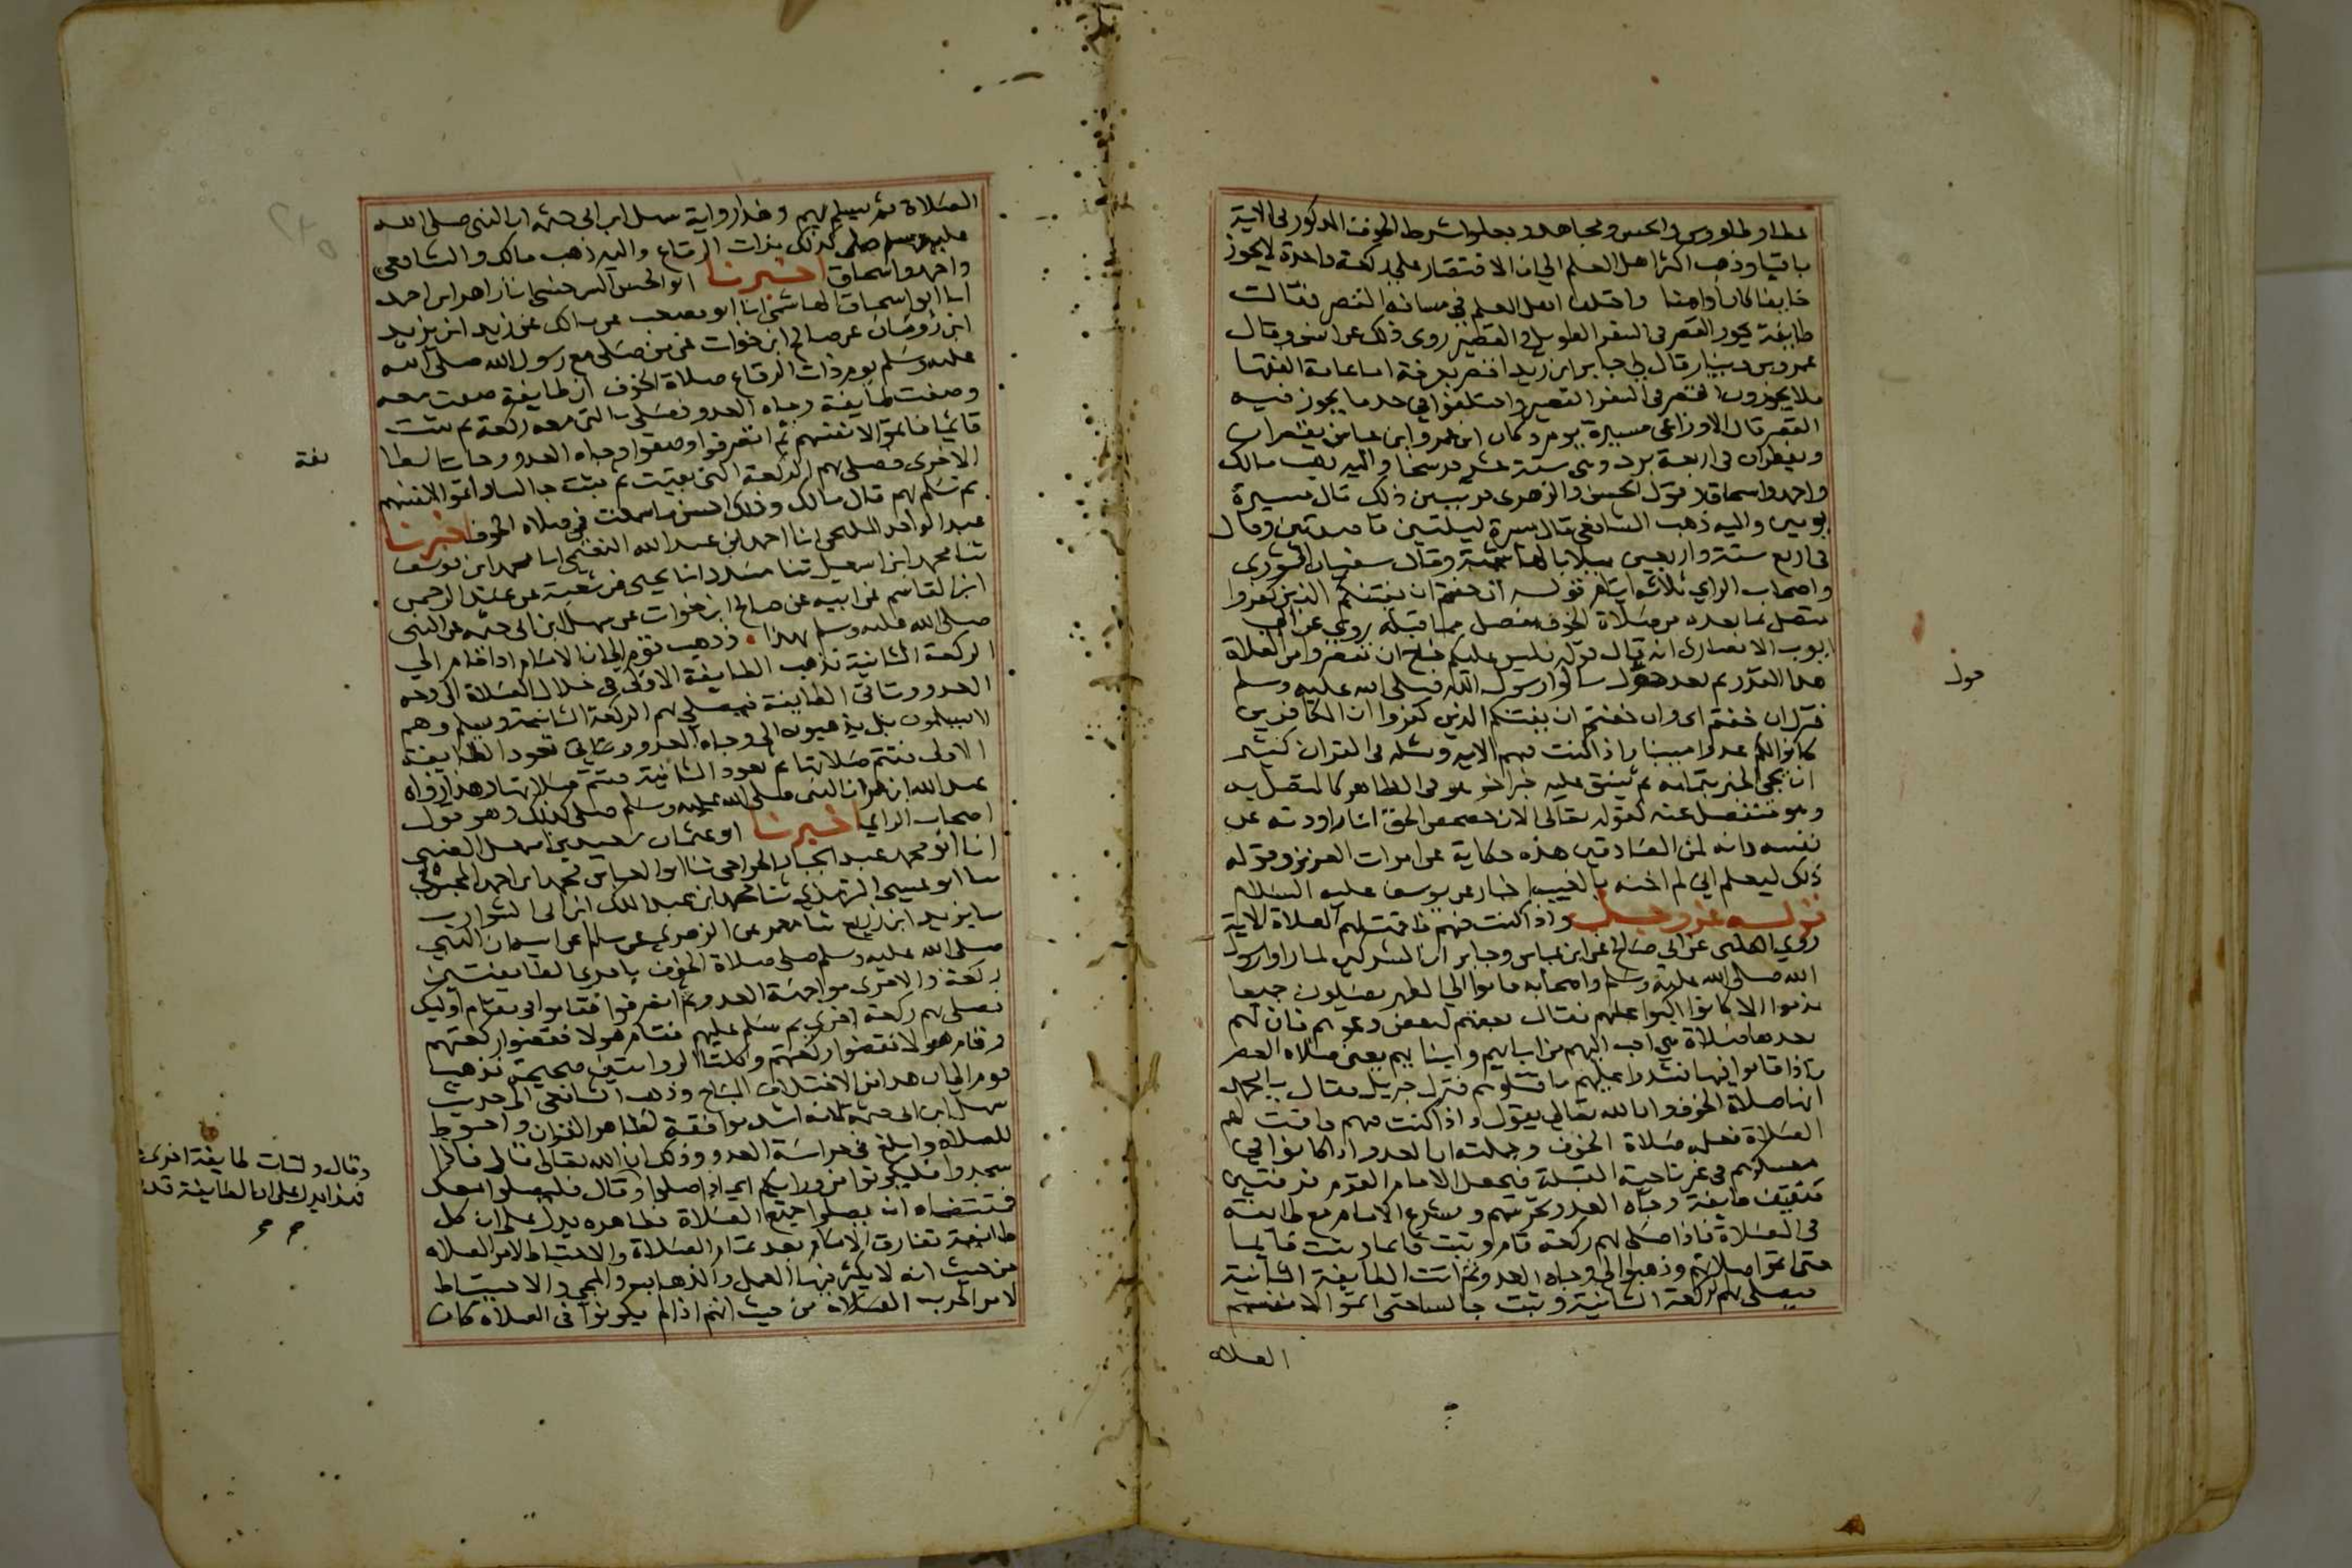 عطا وطاوس والحسن ومجاهد وجعلوا شرط الخوف المذكور في الاية
باقيا وذهب اكثر اهل العلم الي ان الاقتصار على ركعة واحدة لا يجوز
خايفا كان او امنا واختلف اهل العلم في مسافة القصر فقالت
طايفة يجوز القصر في السفر الطويل والقصير روى ذلك عن انس وقال
عمرو بن دينار قال لي جابر ابن زيد اقصر بعرفة اما عامة الفقها
فلا يجوزون القصر في السفر القصير واختلفوا في حد ما يجوز فيه
القصر قال الاوزاعي مسيرة يوم وكان ابن عمر وابن عباس يقصران
ويفطران في اربعة برد وهي ستة عشر فرسخا واليه ذهب مالك
واحمد واسحاق وقول الحسن والزهري قريب من ذلك قال مسيرة
يومين واليه ذهب الشافعي قال مسيرة ليلتين قاصدتين وقال
في موضع ستة واربعين ميلا بالهاشمية وقال سفيان الثوري
واصحاب الراي ثلاثة ايام قوله ان خفتم ان يفتنكم الذين كفروا
متصل بما بعده من صلاة الخوف منفصل مما قبله روي عن ابي
ايوب الانصاري انه قال قوله فليس عليكم جناح ان تقصروا من الصلاة
هذا القدر ثم بعد حول سالوا رسول الله صلى الله عليه وسلم
فنزل ان خفتم اي وان خفتم ان يفتنكم الذين كفروا ان الكافرين
كانوا لكم عدوا مبينا واذا كنت فيهم الاية ومثله في القران كثير
ان يجي الخبر بتمامه ثم ينسق عليه خبر اخر هو في الظاهر كالمتصل به
وهو منفصل عنه كقوله تعالى الان حصحص الحق انا راودته عن
نفسه وانه لمن الصادقين هذه حكاية عن امرات العزيز وقوله
ذلك ليعلم اني لم اخنه بالغيب اخبار عن يوسف عليه السلام
قوله عز وجل واذا كنت فيهم فاقمت لهم الصلاة الاية
روي الكلبي عن ابي صالح عن ابن عباس وجابر ان المشركين لما راوا رسول
الله صلى الله عليه وسلم واصحابه قاموا الي الظهر يصلون جميعا
ندموا الا كانوا اكبوا عليهم فقال بعضهم لبعض دعوهم فان لهم
بعدها صلاة هي احب اليهم من ابايهم وابنايهم يعني صلاة العصر
فاذا قاموا فيها فشدوا عليهم فاقتلوهم فنزل جبريل فقال يا محمد
انها صلاة الخوف وان الله تعالى يقول واذا كنت فيهم فاقمت لهم
الصلاة فعلمه صلاة الخوف وجملته ان العدو اذا كانوا في
معسكرهم في غير ناحية القبلة فيجعل الامام القوم فرقتين
فتقف طايفة وجاه العدو تحرسهم ويشرع الامام مع طايفة
في الصلاة فاذا صلى بهم ركعة قام وثبت قايما وثبت قايما
حتى اتموا صلاتهم وذهبوا الى وجاه العدو ثم اتت الطايفة الثانية
فيصلى بهم الركعة الثانية وثبت جالسا حتى اتموا لانفسهم
حول
الصلاة
الصلاة ثم يسلم بهم وهذا رواية سهل ابن ابي حثمة ان النبي صلى الله
عليه وسلم صلى كذلك بذات الرقاع واليه ذهب مالك والشافعي
واحمد واسحاق اخبرنا ابو الحسن السرخسي انا زاهر ابن احمد
انا ابو اسحاق الهاشمي انا ابو مصعب عن مالك عن زيد ابن يزيد
ابن رومان عن صالح ابن خوات عن من صلى مع رسول الله صلى الله
عليه وسلم يوم ذات الرقاع صلاة الخوف ان طايفة صفت معه
وصفت طايفة وجاه العدو فصلى بالتي معه ركعة ثم ثبت
قائما فاتموا لانفسهم ثم انصرفوا وصفوا وجاه العدو وجات الطا
يفة
الاخرى فصلى بهم الركعة التي بقيت ثم ثبت جالسا واتموا لانفسهم
ثم سلم بهم قال مالك وذلك احسن ما سمعت في صلاة الخوف اخبرنا
عبد الواحد المليحي انا احمد ابن عبد الله النعيمي انا محمد ابن يوسف
ثنا محمد ابن اسمعيل ثنا مسدد انا يحيى عن شعبة عن عبد الرحمن
ابن القاسم عن ابيه عن صالح ابن خوات عن سهل ابن ابي حثمة عن النبي
صلى الله عليه وسلم بهذا وذهب قوم الي ان الامام اذا قام الي
الركعة الثانية تذهب الطايفة الاولى في خلال الصلاة الى وجه
العدو وتاتي الطايفة فيصلي بهم الركعة الثانية ويسلم وهم
لا يسلمون بل يذهبون الى وجاه العدو وتاتي تعود الطايفة
الاولى فتتم صلاتها ثم تعود الثانية فتتم صلاتها وهذا رواه
عبد الله ابن عمر ان النبي صلى الله عليه وسلم صلى كذلك وهو قول
اصحاب الراي اخبرنا ابو عثمان سعيد بن اسمعيل الضبي
انا ابو محمد عبد الجبار الجراحي ثنا ابو العباس محمد ابن احمد المحبوبي
ثنا ابو عيسى الترمذي ثنا محمد ابن عبد الملك ابن ابي الشوارب
ثنا يزيد ابن زريع ثنا معمر عن الزهري عن سالم عن ابيه ان النبي
صلى الله عليه وسلم صلى صلاة الخوف باحدى الطايفتين
ركعة والاخرى مواجهة العدو ثم انصرفوا فقاموا في مقام اوليك
فصلى بهم ركعة اخرى ثم سلم عليهم فقام هولا فقضوا ركعتهم
وقام هولا فقضوا ركعتهم وكلتا الروايتين صحيحة فذهب
قوم الي ان هذا من الاختلاف المباح وذهب الشافعي الى حديث
سهل ابن ابي حثمة لانه اشد موافقة لظاهر القران واحوط
للصلاة وابلغ في حراسة العدو وذلك ان الله تعالى قال فاذا
سجدوا فليكونوا من ورايكم اي اذا صلوا وقال فليصلوا معك
وقال ولتات طايفة اخرى
فهذا يدل على ان الطايفة قد
فمقتضاه ان يصلوا جميع الصلاة فظاهره يدل على ان كل
طايفة تفارق الامام بعد تمام الصلاة والاحتياط لامر الصلاة
من حيث انه لا يكثر فيها العمل والذهاب والمجي والاحتياط
لامر الحرب الصلاة من حيث انهم اذا لم يكونوا في الصلاة كان